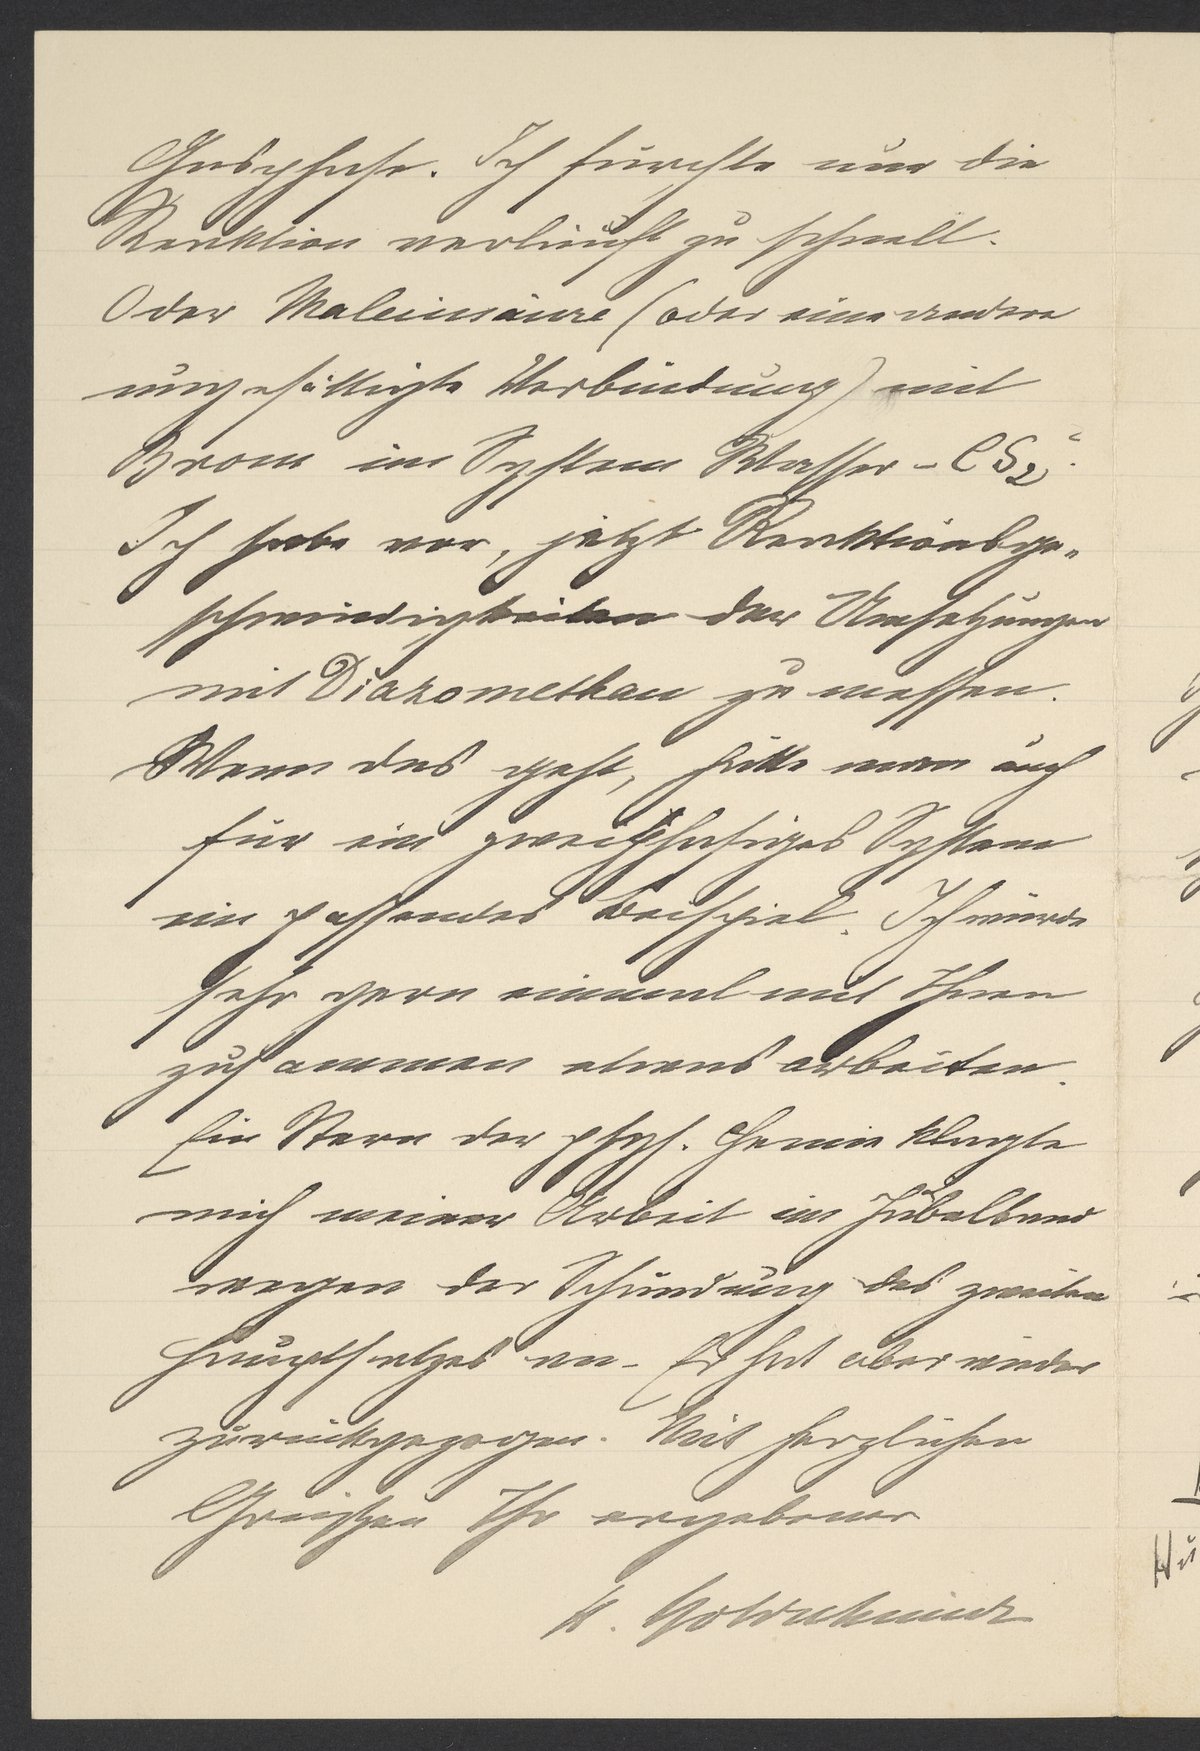 Gasphase. Ich fürchte nur die
Reaktion verläuft zu schnell.
Oder Maleinsäure (oder eine andere
ungesättigte Verbindung) mit
Brom im System Wasser - CS2.
Ich habe vor, jetzt Reaktionsge-
schwindigkeiten der Umsetzungen
mit Diazomethan zu messen.
Wenn das geht, hätte man auch
für ein zweiphasiges System
ein passendes Beispiel. Ich würde
sehr gern einmal mit Ihnen
zusammen etwas arbeiten.
Ein Stern der phys. Chemie klagte
mich meiner Arbeit im Jubelband
wegen der Schändung des zweiten
Hauptsatzes an - Er hat aber wieder
zurückgezogen. Mit herzlichen
Grüßen Ihr ergebener
H. Goldschmidt